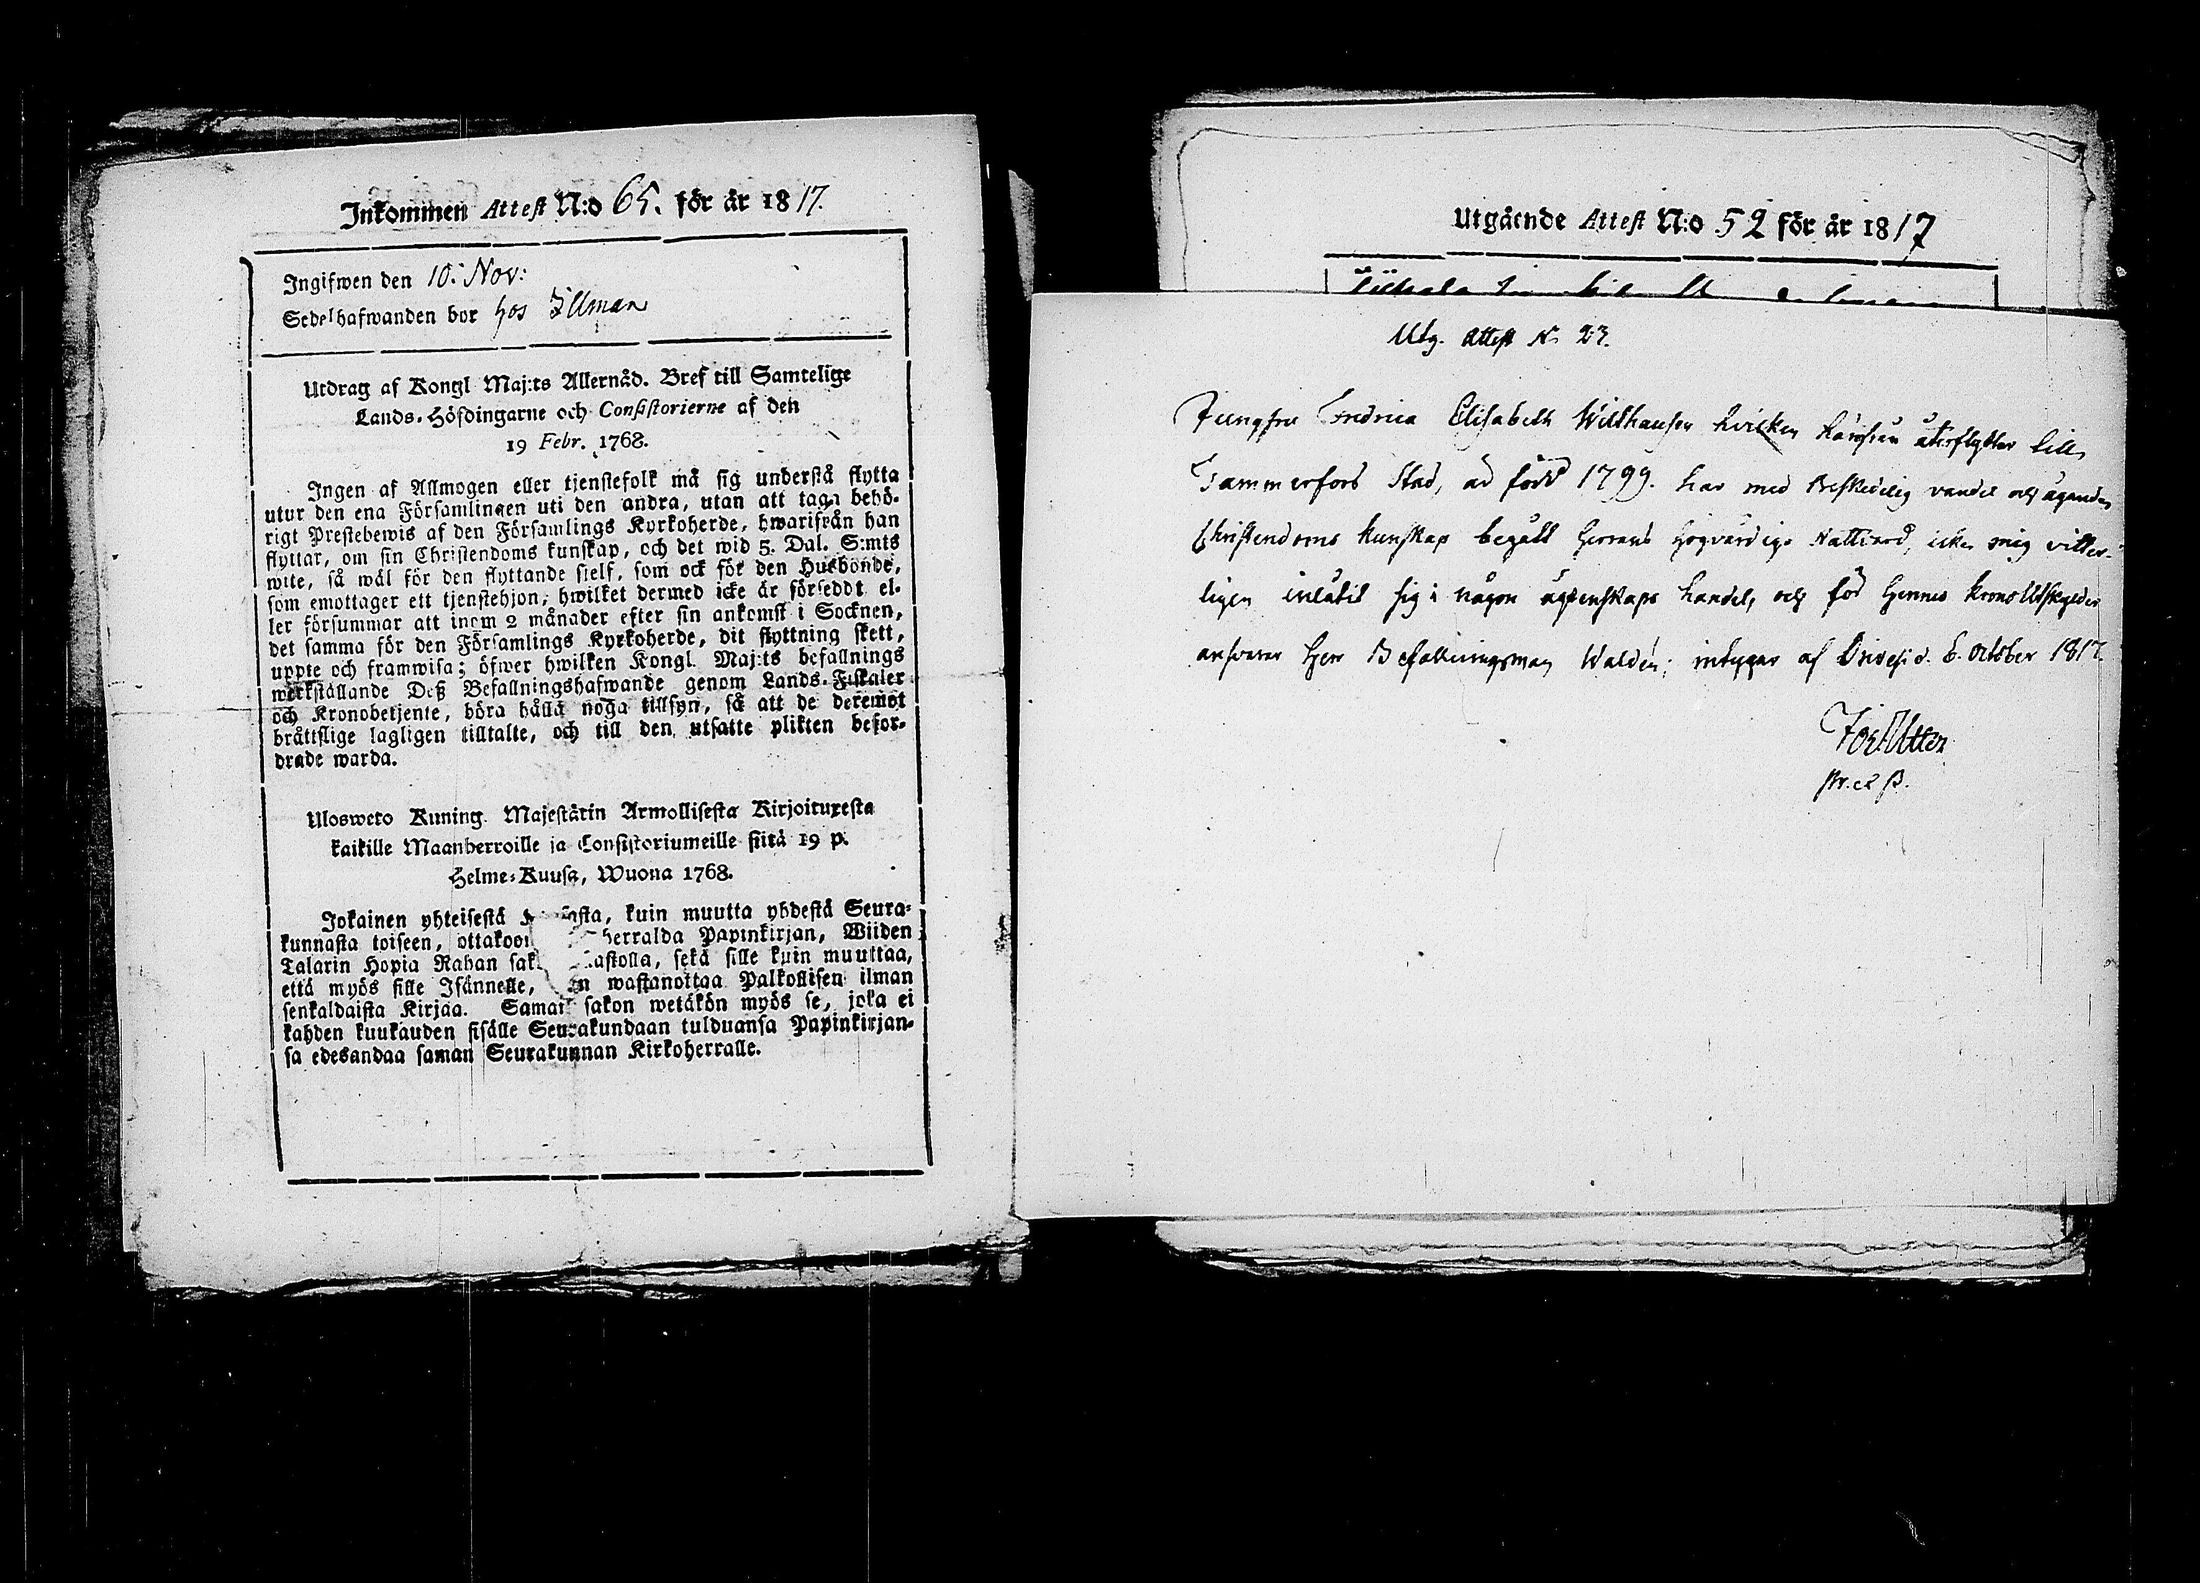 Inkommen Attest N:o 65. för år 1817.
Ingifwen den 10. Nov:
Sedelhafwanden bor hos Illman
Utdrag af Kongl Maj:ts Allernåd. Bref till Samtelige
Lands-Höfdingarne och Consistorierne af den
19 Febr. 1768.
Ingen af Allmogen eller tjenstefolk må sig understå flytta
utur den ena Församlingen uti den andra, utan att taga behö-
rigt Prestebewis af den Församlings Kyrkoherde, hwarifrån han
flyttar, om sin Christendoms kunskap, och det wid 5. Dal. S:mts
wite, så wäl för den flyttande sielf, som ock för den Husbonde,
som emottager ett tjenstehjon, hwilket dermed icke är förseddt el-
ler försummar att inom 2 månader efter sin ankomst i Socknen,
det samma för den Församlings Kyrkoherde, dit flyttning skett,
uppte och framwisa; öfwer hwilken Kongl. Maj:ts befallnings
werkställande Deß Befallningshafwande genom Lands-Fiskaler
och Kronobetjente, böra hålla noga tillsyn, så att de deremot
bråttslige lagligen tilltalte, och till den utsatte plikten befor-
drade warda.
Ulosweto Kuning. Majestätin Armollisesta Kirjoituxesta
kaikille Maanherroille ja Consistoriumeille siitä 19 p.
Helme-Kuusa, Wuona 1768.
Jokainen yhteisestä kuin muutta yhdestä Seura-
kunnasta toiseen, Papinkirjan, Wiiden
Talarin Hopia Rahan sekä sille kuin muuttaa,
että myös sille Isännelle, wastanottaa Palkollisen ilman
senkaldaista Kirjaa. sakon wetäkön myös se, joka ei
kahden kuukauden sisälle Seurakundaan tulduansa Papinkirjan-
sa edesandaa saman Seurakunnan Kirkoherralle.
Utgående Attest N:o 52 för år 1817
Utg. Attest N. 23.
Jungfru Fredrica Elisabeth Wilthausen hvilken härifrån återflyttar till
Tammerfors Stad, är född 1799. har med Beskedelig vandel och ägande
Christendoms kunskap begått Herrans Högvärdiga Nattvard, icke mig vitter-
ligen inlåtit sig i någon ägtenskaps handel, och för Hennes krono Utskylder
ansvarar Herr Befallningsman Waldén; intygar af Orivesi d. 6. October 1817.